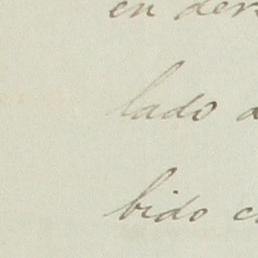 en der
lado
bido c